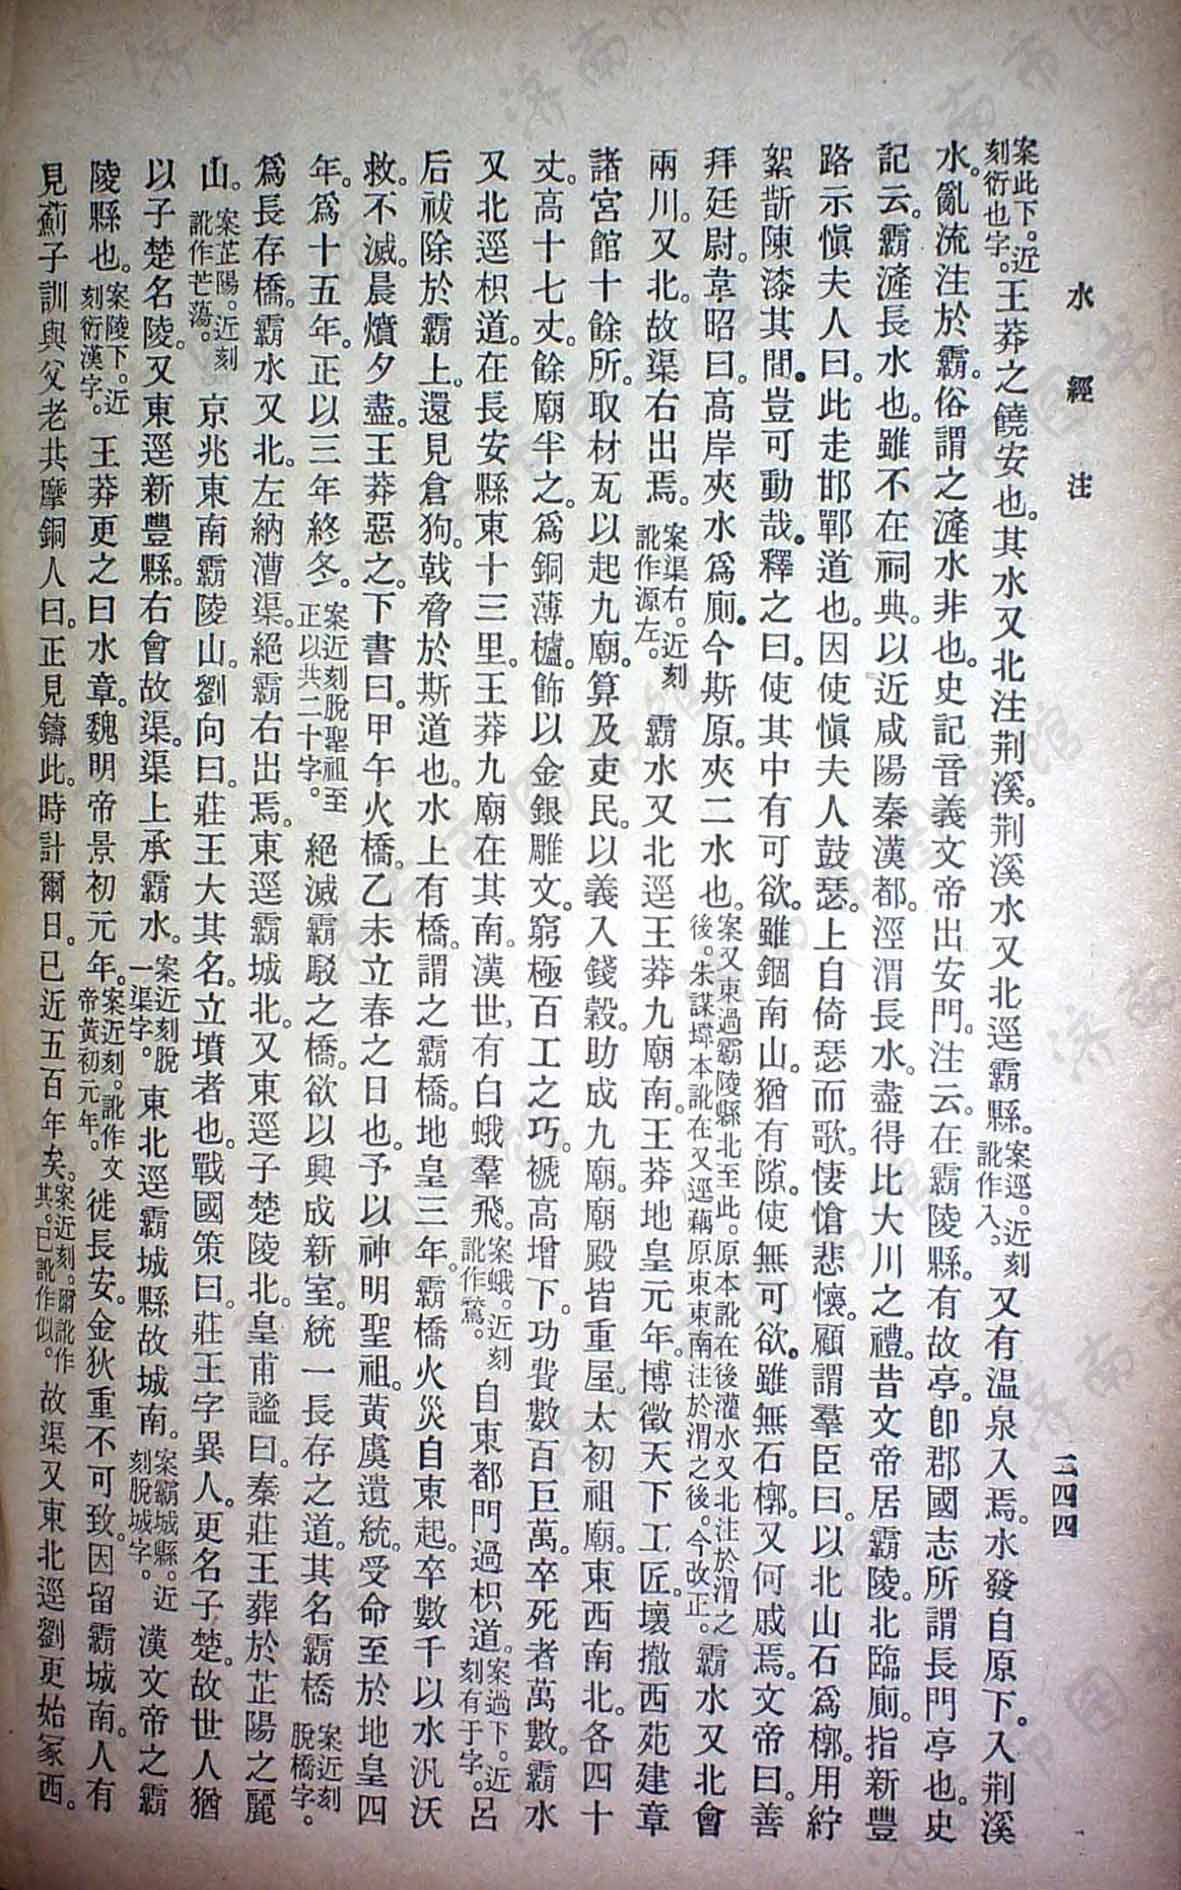 水經注
二四四
案此下。近刻衍也字。王莽之饒安也。其水又北注荆溪。荆溪水又北逕霸縣。案逕。近刻訛作入。又有温泉入焉。水發自原下。入荆溪
水。亂流注於霸。俗謂之滻水非也。史記音義文帝出安門。注云。在霸陵縣。有故亭。卽郡國志所謂長門亭也。史
記云。霸滻長水也。雖不在祠典。以近咸陽秦漢都。涇渭長水。盡得比大川之禮。昔文帝居霸陵。北臨廁。指新豐
路示愼夫人曰。此走邯鄲道也。因使愼夫人鼓瑟。上自倚瑟而歌。悽愴悲懷。顧謂羣臣曰。以北山石爲槨。用紵
絮斮陳漆其間。豈可動哉。釋之曰。使其中有可欲。雖錮南山。猶有隙。使無可欲。雖無石槨。又何戚焉。文帝曰。善
拜廷尉。韋昭曰。高岸夾水爲廁。今斯原。夾二水也。案又東過霸陵縣北至此。原本訛在後灌水又北注於渭之後。朱謀㙔本訛在又逕藕原東東南注於渭之後。今改正。霸水又北會
兩川。又北。故渠右出焉。案渠右。近刻訛作源左。霸水又北逕王莽九廟南。王莽地皇元年。博徵天下工匠。壞撤西苑建章
諸宮館十餘所。取材瓦以起九廟。算及吏民。以義入錢穀。助成九廟。廟殿皆重屋。太初祖廟。東西南北。各四十
丈。高十七丈。餘廟半之。爲銅薄櫨。飾以金銀雕文。窮極百工之巧。褫高增下。功費數百巨萬。卒死者萬數。霸水
又北逕枳道。在長安縣東十三里。王莽九廟在其南。漢世。有白蛾羣飛。案蛾。近刻訛作鵞。自東都門過枳道。案過下。近刻有于字。呂
后祓除於霸上。還見倉狗。戟脅於斯道也。水上有橋。謂之霸橋。地皇三年。霸橋火災自東起。卒數千以水汎沃
救。不滅。晨燌夕盡。王莽惡之。下書曰。甲午火橋。乙未立春之日也。予以神明聖祖。黄虞遺統。受命至於地皇四
年。爲十五年。正以三年終冬。案近刻脫聖祖至正以共二十字。絕滅霸駁之橋。欲以興成新室。統一長存之道。其名霸橋案近刻脫橋字。
爲長存橋。霸水又北。左納漕渠。絕霸右出焉。東逕霸城北。又東逕子楚陵北。皇甫謐曰。秦莊王葬於芷陽之麗
山。案芷陽。近刻訛作芒蕩。京兆東南霸陵山。劉向曰。莊王大其名。立墳者也。戰國策曰。莊王字異人。更名子楚。故世人猶
以子楚名陵。又東逕新豐縣。右會故渠。渠上承霸水。案近刻脫一渠字。東北逕霸城縣故城南。案霸城縣。近刻脫城字。漢文帝之霸
陵縣也。案陵下。近刻衍漢字。王莽更之曰水章。魏明帝景初元年。案近刻。訛作文帝黄初元年。徙長安。金狄重不可致。因留霸城南。人有
見薊子訓與父老共摩銅人曰。正見鑄此。時計爾日。已近五百年矣。案近刻。爾訛作其。已訛作似。故渠又東北逕劉更始冢西。